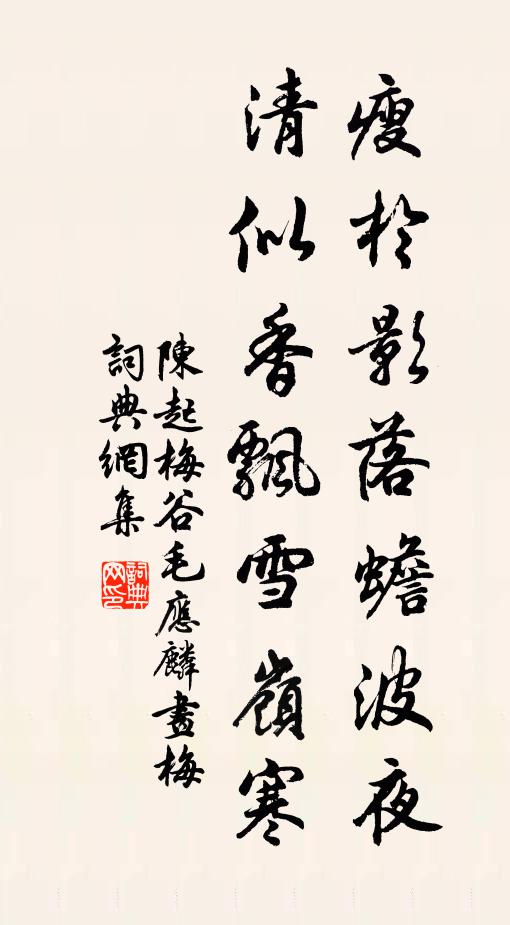 瘦於影落蟾波夜
清似香飄雪嶺寒
陳起梅谷毛應麟畫梅
詞典網集
詞典网印